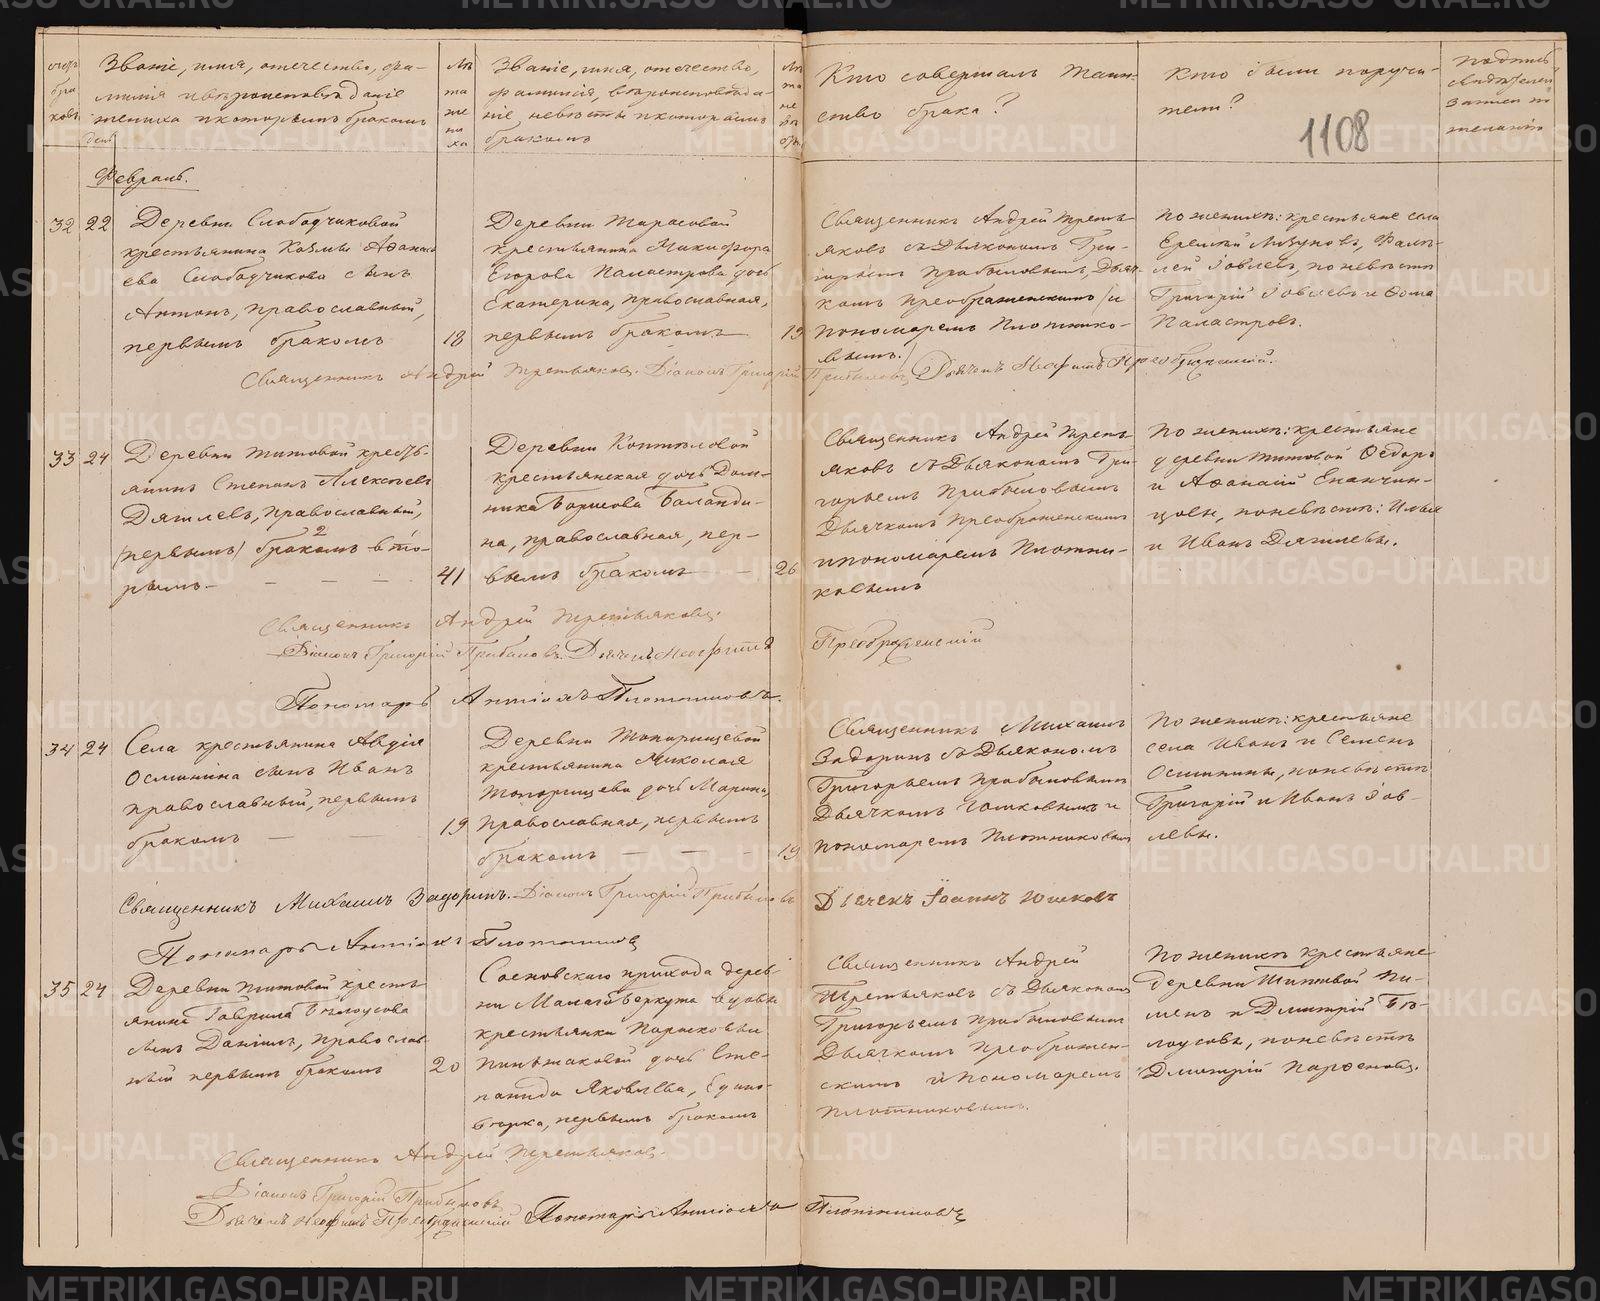 Званіе, имя, отечество, фа-
милія и вѣроисповѣданіе
жениха и которымъ бракомъ
Званіе, имя, отечество,
фамилія, вѣроисповѣда-
ніе невѣсты и которымъ
бракомъ
Кто совершалъ таин-
ство брака?
Кто были поручи-
тели?
1108
Февраль.
32 22
Деревни Слободчиковой
крестьянина Козьмы Аѳанась
ева Слободчикова сынъ
Антонъ, православный,
первымъ бракомъ
18
Деревни Тарасовой
крестьянина Никифора
Егорова Паластрова дочь
Екатерина, православная,
первымъ бракомъ
19
Священникъ Андрей Треть-
яковъ съ Дьякономъ Гри-
горьемъ Прибыловымъ, Дьяч-
комъ Преображенскимъ и
пономаремъ Плотнико-
вымъ.
По женихѣ: крестьяне села
Григорій Іовлевъ и Ѳома
Паластровъ.
Священникъ Андрей Третьяковъ. Діаконъ Григорій Прибыловъ Дьячекъ Неофитъ Преображенскій.
33 24
Деревни Титовой кресть-
янинъ Степанъ Алексѣевъ
Дягилевъ, православный,
(первымъ) бракомъ 2 вто-
рымъ
41
Деревни Коптѣловой
крестьянская дочь Дом-
ника Борисова Баланди-
на, православная, пер-
вымъ бракомъ
26
Священникъ Андрей Треть
яковъ съ Дьякономъ Гри-
горьемъ Прибыловымъ
Дьячкомъ Преображенскимъ
и пономаремъ Плотни-
ковымъ
По женихѣ: крестьяне
деревни Титовой Ѳедоръ
и Аѳанасій Епанчин-
цовы, по невѣстѣ: Илья
и Иванъ Дягилевы.
Священникъ Андрей Третьяковъ.
Діаконъ Григорій Прибыловъ. Дьячекъ Неофитъ Преображенскій
Пономарь Антіохъ Плотниковъ.
34 24
Села крестьянина Авдія
Осминина сынъ Иванъ
православный, первымъ
бракомъ
19
Деревни Топорищевой
крестьянина Николая
Топорищева дочь Марина,
православная, первымъ
бракомъ
19
Священникъ Михаилъ
Задоринъ съ Дьякономъ
Григорьемъ Прибыловымъ
пономаремъ Плотниковымъ
По женихѣ: крестьяне
села Иванъ и Семенъ
Осминины, по невѣстѣ
Григорій и Иванъ Іов-
левы.
Священникъ Михаилъ Задоринъ. Діаконъ Григорій Прибыловъ Дьячекъ Іоаннъ
Пономарь Антіохъ Плотниковъ
35 24
Деревни Титовой кресть
янина Гаврила Бѣлоусова
сынъ Даніилъ, православ
ный первымъ бракомъ
20
Сосновскаго прихода дерев-
ни Малаго Беркута вдовы
крестьянки Парасковьи
дочь Сте-
панида Яковлева, Едино-
вѣрка, первымъ бракомъ
Священникъ Андрей
Третьяковъ съ Дьякономъ
Григорьемъ Прибыловымъ
Дьячкомъ Преображен-
скимъ и пономаремъ
Плотниковымъ.
По женихѣ крестьяне
деревни Титовой Пи-
менъ и Дмитрій Бѣ-
лоусовы, по невѣстѣ
Дмитрій Парѳеновъ.
Священникъ Андрей Третьяковъ.
Діаконъ Григорій Прибыловъ
Дьячекъ Неофитъ Преображенскій Пономарь Антіохъ Плотниковъ
METRIKI.GASO-URAL.RU